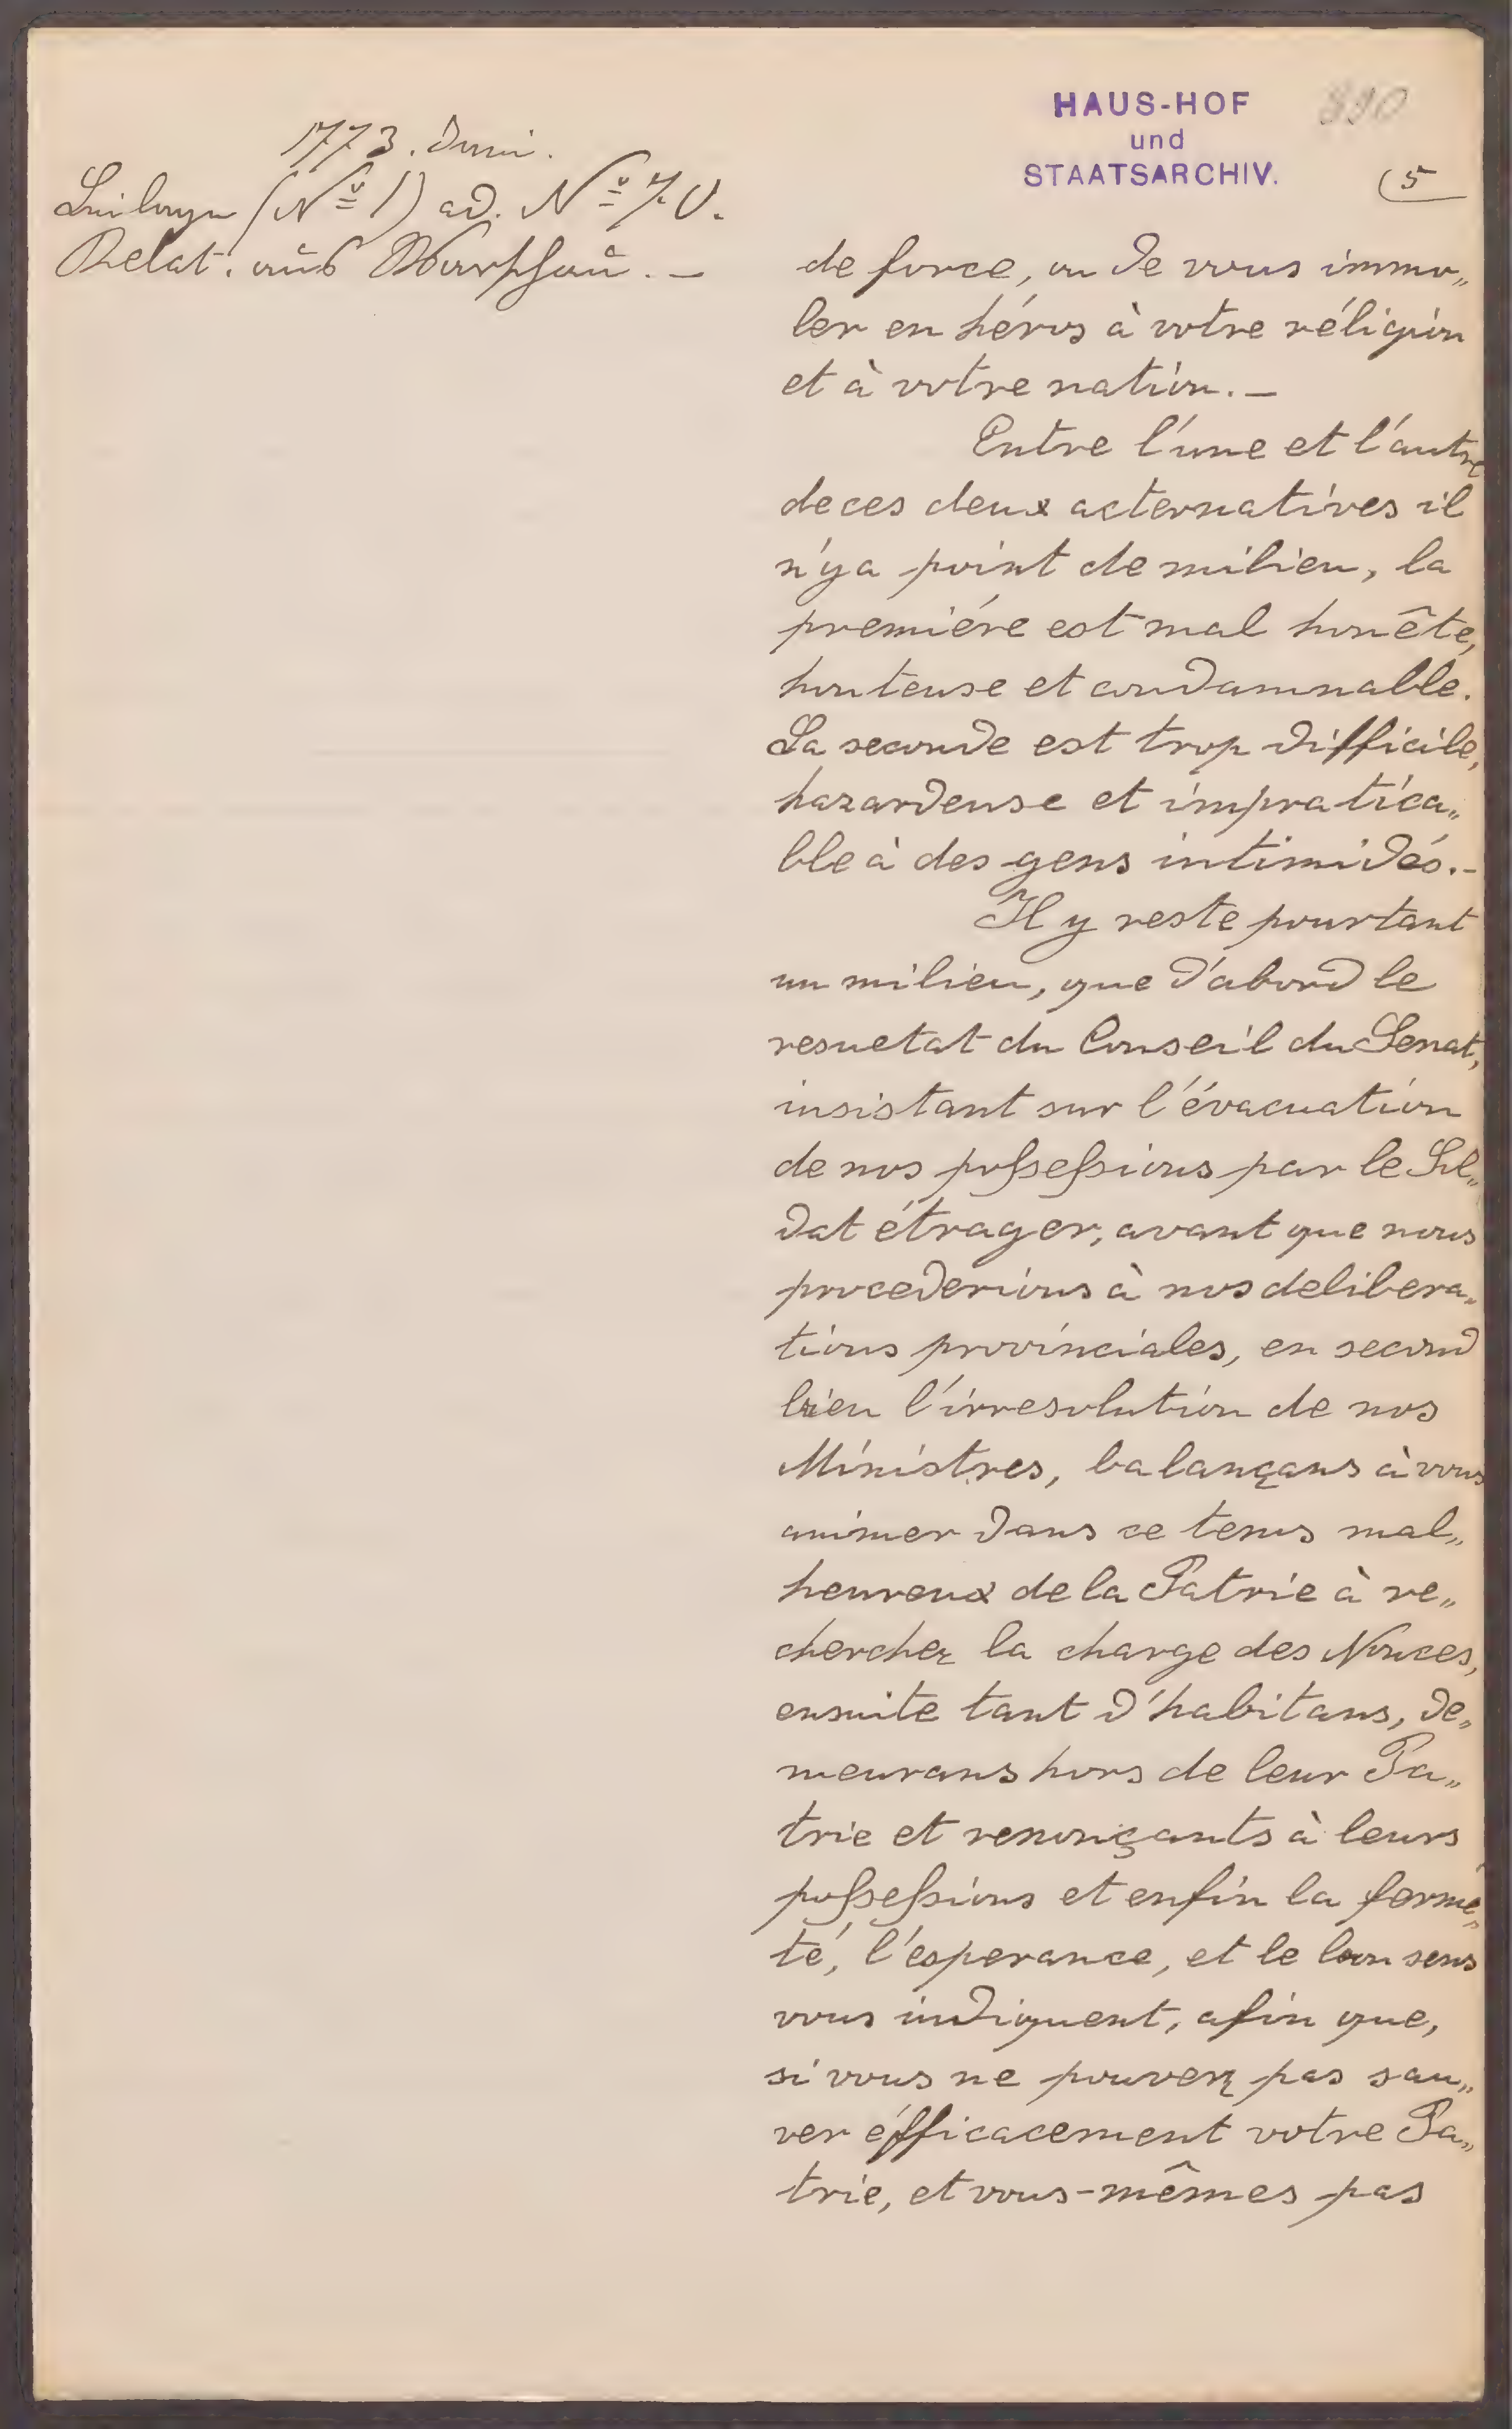 HAUS-HOF
und
STAATSARCHIV.
(5
1773. Juni.
Beilage (Nº 1) ad. Nº 70.
Relat. aus Warschau. —
de force, ou de vous immo„
ler en héros à votre réligion
et à votre nation. —
Entre l'une et l'autre
de ces deux acternatives il
n'y a point de milieu, la
premiére est mal honête,
honteuse et condamnable.
La seconde est trop difficile,
hazardeuse et impratica„
ble à des gens intimidés. —
Il y reste pourtant
un milieu, que d'abord le
resuetat du Conseil du Senat,
insistant sur l'évacuation
de nos possessions par le Sol„
dat étrager, avant que nous
procederions à nos delibera„
tions provinciales, en second
lieu l'irresolution de nos
Ministres, balançans à vous
animer dans ce tems mal„
heureux de la Patrie à re„
chercher la charge des Nonces,
ensuite tant d'habitans, de„
meurans hors de leur Pa„
trie et renonçants à leurs
possessions et enfin la ferme„
té, l'esperance, et le bon sens
vous indiquent, afin que,
si vous ne pouvez pas sau„
ver éfficacement votre Pa„
trie, et vous-mêmes pas